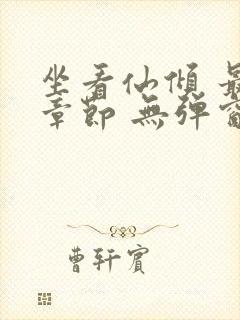 坐看仙傾 最
章節 無彈窗
曹軒賓